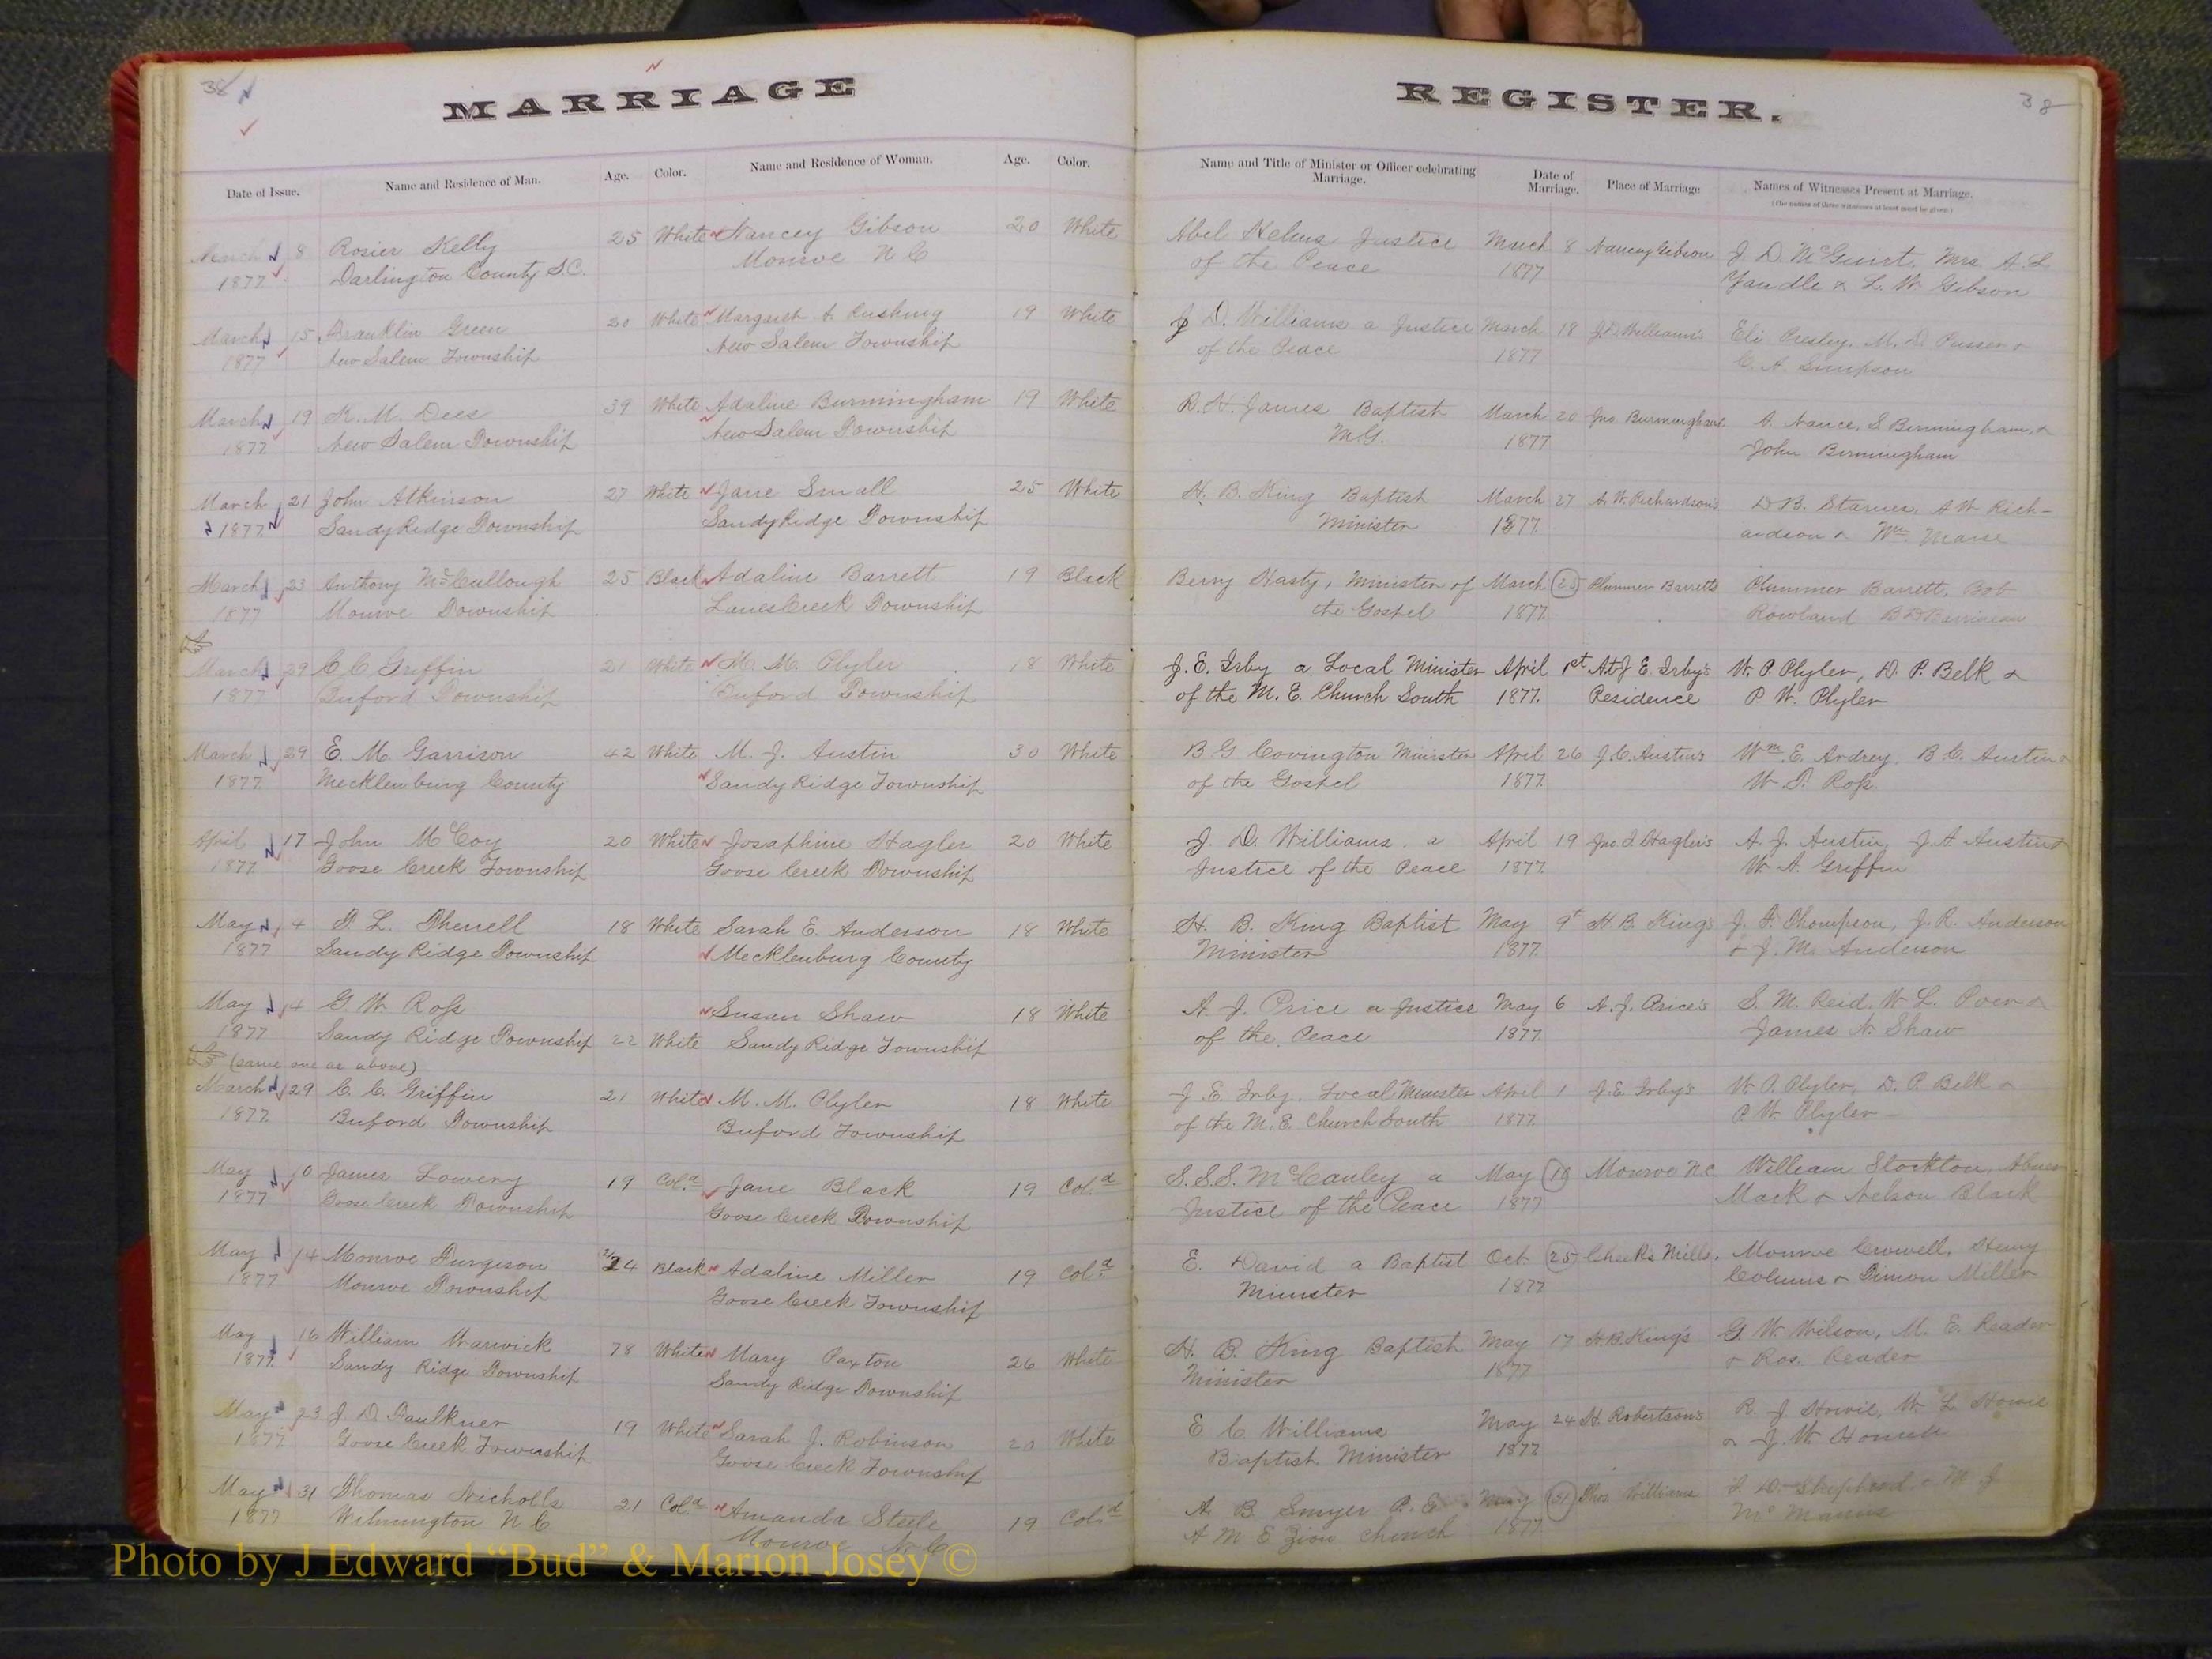 38
MARRIAGE
Date of Issue. Name and Residence of Man. Age. Color. Name and Residence of Woman. Age. Color.
March 8 Rosier Kelly 25 White Nancey Gibson 20 White
1877 Darlington County S.C. Monroe N C
March 15 Franklin Green 20 White Margaret A Rushing 19 White
1877 New Salem Township New Salem Township
March 19 K. M. Dees 39 White Adaline Burmingham 19 White
1877 New Salem Township New Salem Township
March 21 John Atkinson 27 White Jane Small 25 White
1877 Sandy Ridge Township Sandy Ridge Township
March 23 Anthony McCullough 25 Black Adaline Barrett 19 Black
1877 Monroe Township Lanes Creek Township
March 29 C C Griffin 21 White M. M. Plyler 18 White
1877 Buford Township Buford Township
March 29 E. M. Garrison 42 White M. J. Austin 30 White
1877 Mecklenburg County Sandy Ridge Township
April 17 John McCoy 20 White Josaphine Hagler 20 White
1877 Goose Creek Township Goose Creek Township
May 4 T. L. Therrell 18 White Sarah E. Anderson 18 White
1877 Sandy Ridge Township Mecklenburg County
May 4 G. W. Ross Susan Shaw 18 White
1877 Sandy Ridge Township 22 White Sandy Ridge Township
(same one as above)
March 29 C. C. Griffin 21 White M. M. Plyler 18 White
1877 Buford Township Buford Township
May 10 James Lowery 19 Col.d Jane Black 19 Col.d
1877 Goose Creek Township Goose Creek Township
May 14 Monroe Furgeson 24 Black Adaline Miller 19 Col.d
1877 Monroe Township Goose Creek Township
May 16 William Warwick 78 White Mary Paxton 26 White
1877 Sandy Ridge Township Sandy Ridge Township
May 23 J D Faulkner 19 White Sarah J. Robinson 20 White
1877 Goose Creek Township Goose Creek Township
May 31 Thomas Nicholls 21 Col.d Amanda Steele 19 Col.d
1877 Wilmington N C Monroe N C
38
REGISTER.
Name and Title of Minister or Officer celebrating Marriage. Date of Marriage. Place of Marriage Names of Witnesses Present at Marriage.
(The names of three witnesses at least must be given)
Abel Helms Justice March 8 Nancey Gibson J. D. McGuirt. Mrs A. L
of the Peace 1877 Yandle & L. W Gibson
J D. Williams a Justice March 18 J.D Williams's Eli Presley. M. D. Pusser &
of the Peace 1877 C. A. Simpson
R. H. James Baptist March 20 Jno Burmingham's A. Nance, S Birmingham, &
M.G. 1877 John Birmingham
H. B. King Baptist March 27 A. W. Richardson's D B. Starnes, A W. Rich-
Minister 1877. ardson & Wm.
Berry Hasty, Minister of March 25 Plummer Barretts Plummer Barrett, Bob
the Gospel 1877. Rowland
J. E. Irby a Local Minister April 1st At J E. Irby's W. P. Plyler, D. P. Belk &
of the M. E. Church South 1877. Residence P. W. Plyler
B G Covington Minister April 26 J. C. Austin's Wm. E. Ardrey, B. C. Austin &
of the Gospel 1877. W. D. Ross
J. D. Williams, a April 19 Jno. I. Hagler's A. J. Austin, J. A Austin &
Justice of the Peace 1877. W. A. Griffin
H. B. King Baptist May 9t H. B. King's J. F. Thompson, J. R. Anderson
Minister 1877. & J. M. Anderson
A J. Price a Justice May 6 A. J. Price's S. M. Reid, W. L. &
of the Peace 1877. James N. Shaw
J. E. Irby. Local Minister April 1 J. E. Irby's W. P. Plyler, D. P. Belk &
of the M. E. Church South 1877. P. W. Plyler
S. S. S. McCauley a May 10 Monroe N C William Stockton, Abner
Justice of the Peace 1877 Mack & Nelson Black
E. David a Baptist Oct 25 Cheek's Mills. Monroe Crowell, Henry
Minister 1877 & Simon Miller
H. B. King Baptist May 17 H. B. King's G. W. Wilson, M. E. Reader
Minister 1877 & Reader
E C Williams May 24 H. Robertson's R. J Howie, W. L Howie
Baptist Minister 1877. & J. W.
A. B. Smyer P. E May 31 Thos Williams D. Shepherd & M J
A M E Zion Church 1877 McManus
Photo by J Edward “Bud” & Marion Josey ©